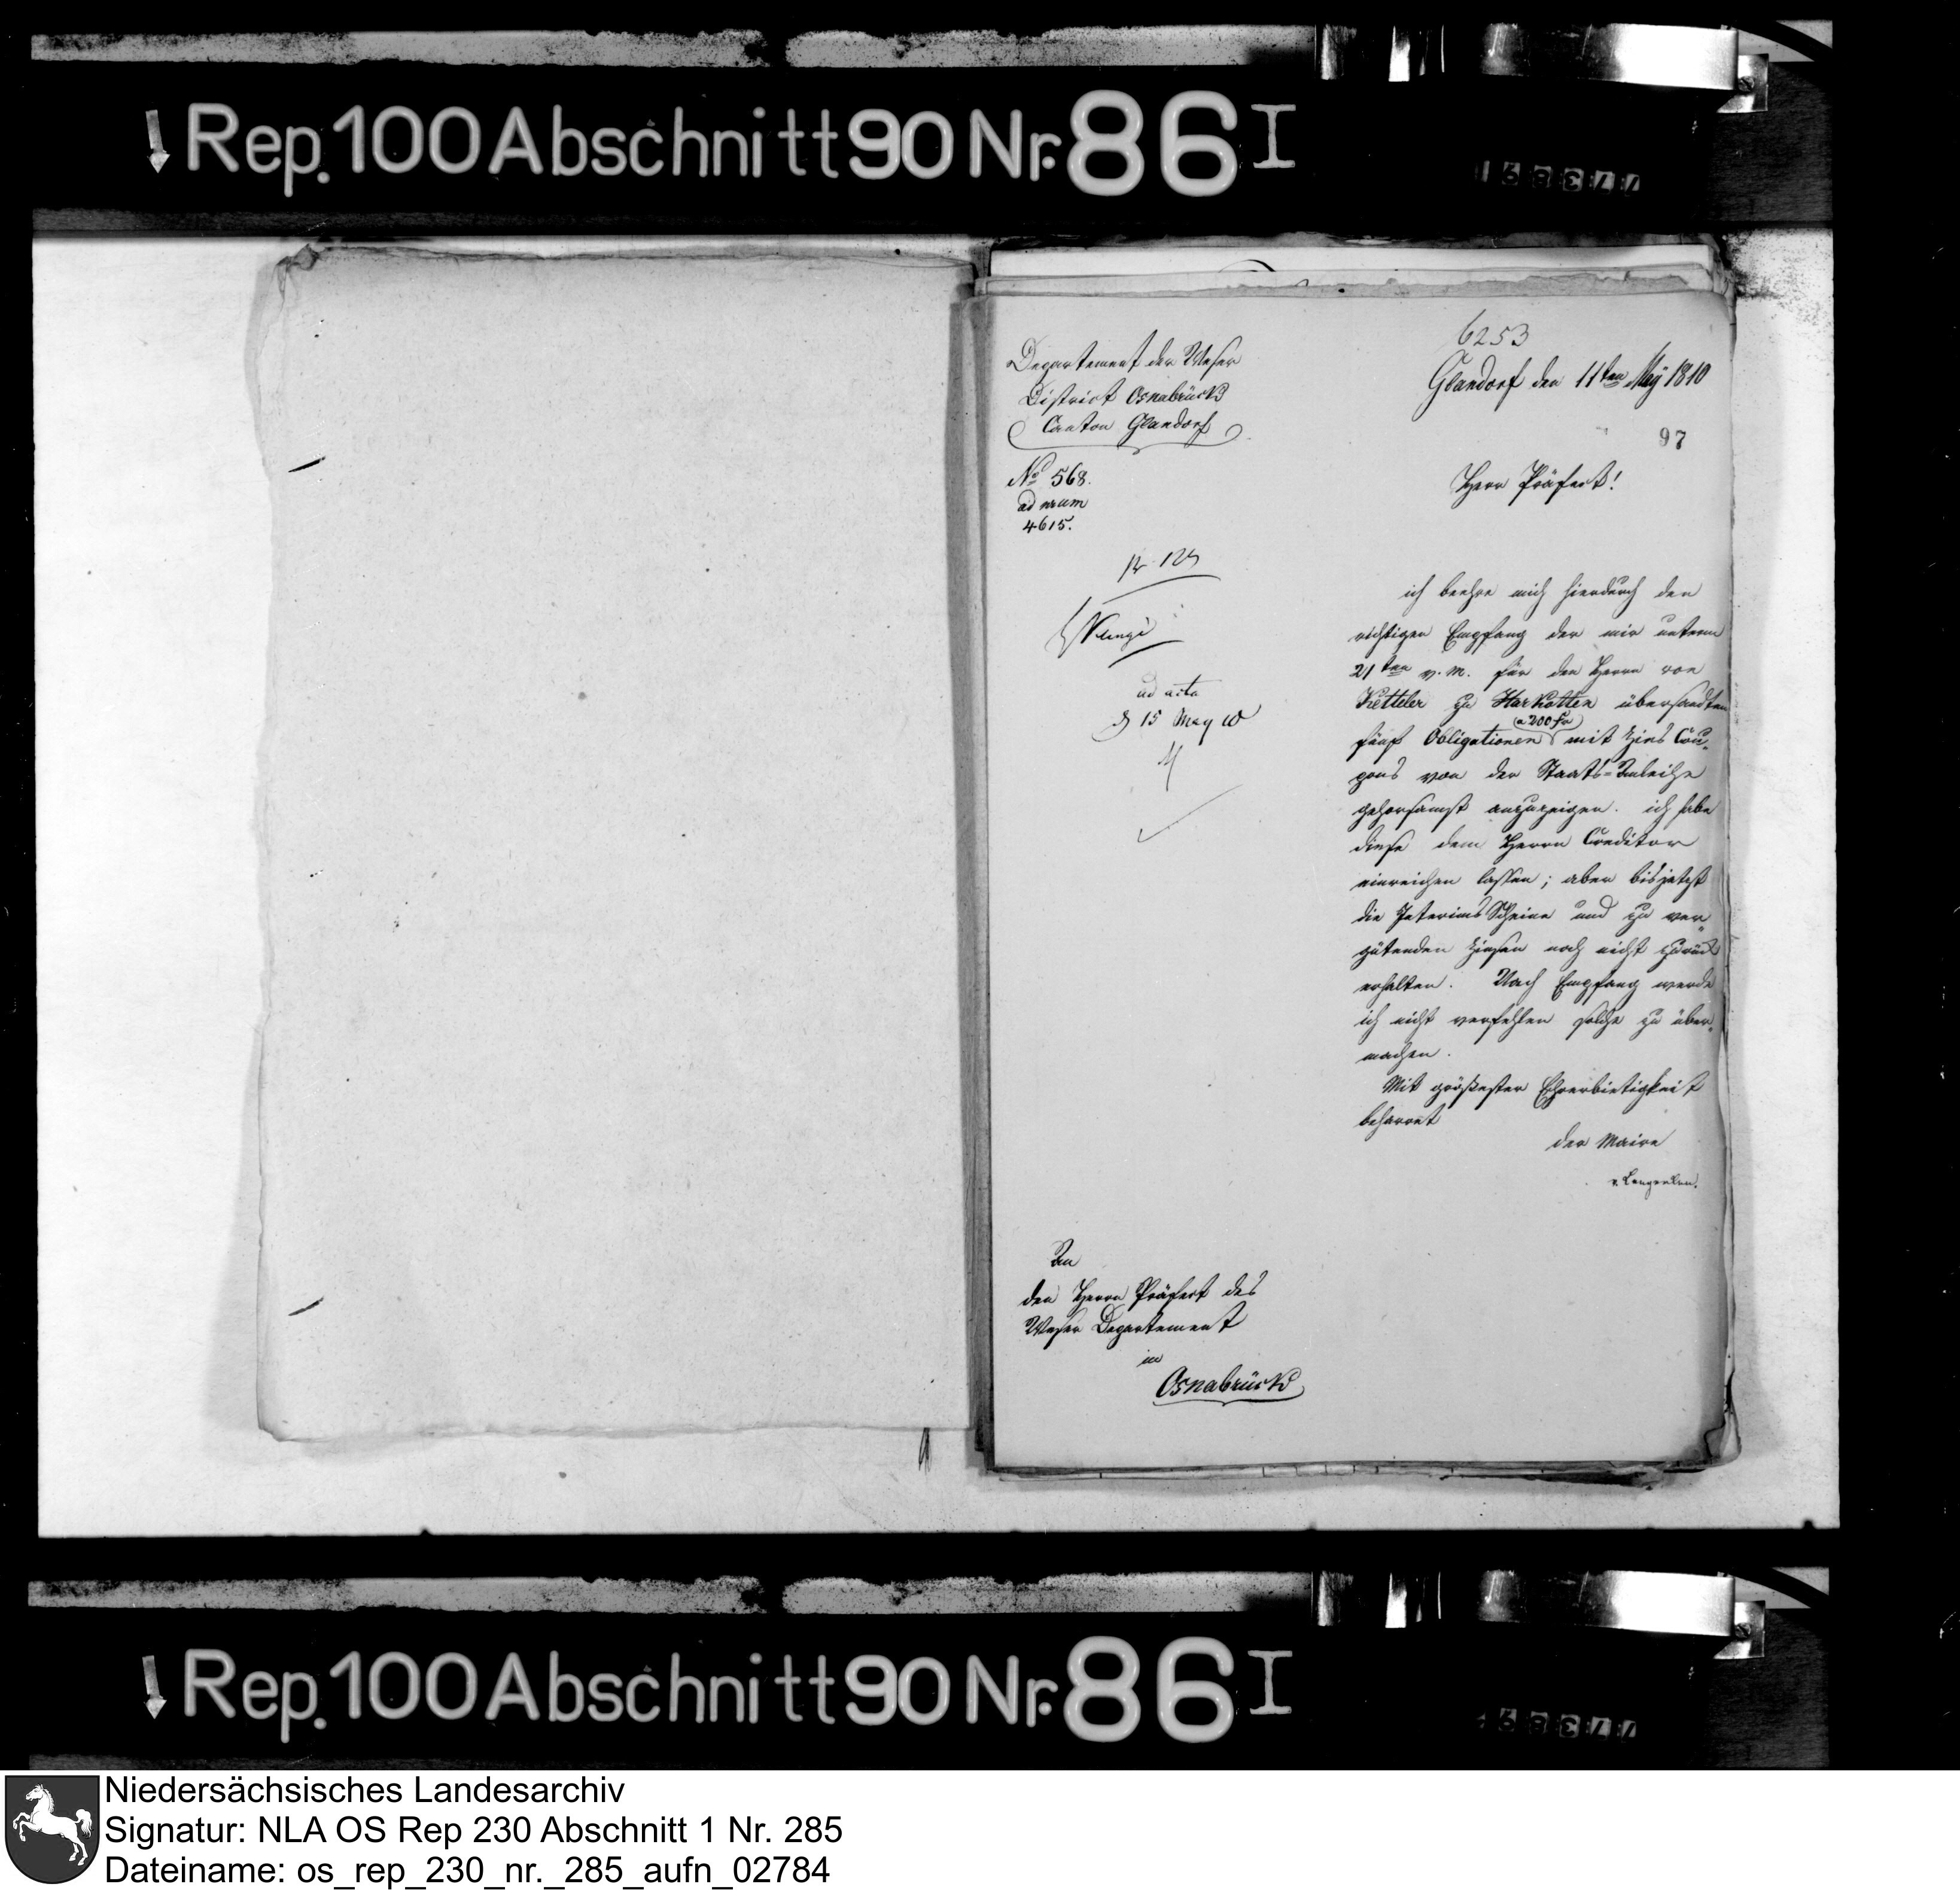 Rep. 100 Abschnitt 90 Nr. 86 I
6253
Departement der Weser
District Osnabrück
Canton Glandorf
Glandorf den 11ten May 1810
97
No 568.
ad nrum
4615.
Herr Präfect!
ad acta
15 May 10
ich beehre mich hierdurch den
richtigen Empfang der mir unterm
21ten v. M. für den Herrn von
Ketteler zu Harkotten übersandten
(a 200 fr)
fünf Obligationen mit Zins Cou-
pons von der Staats-Anleihe
gehorsamst anzuzeigen. ich habe
diese dem Herrn Creditor
einreichen lassen; aber bisjetzt
die Interims Scheine und zu ver-
gütenden Zinsen noch nicht zurück
erhalten. Nach Empfang werde
ich nicht verfehlen solche zu über-
machen.
Mit größester Ehrerbietigkeit
beharret
der Maire
An
den Herrn Präfect des
Weser Departement
in
Osnabrück
Rep. 100 Abschnitt 90 Nr. 86 I
Niedersächsisches Landesarchiv
Signatur: NLA OS Rep 230 Abschnitt 1 Nr. 285
Dateiname: os_rep_230_nr._285_aufn_02784